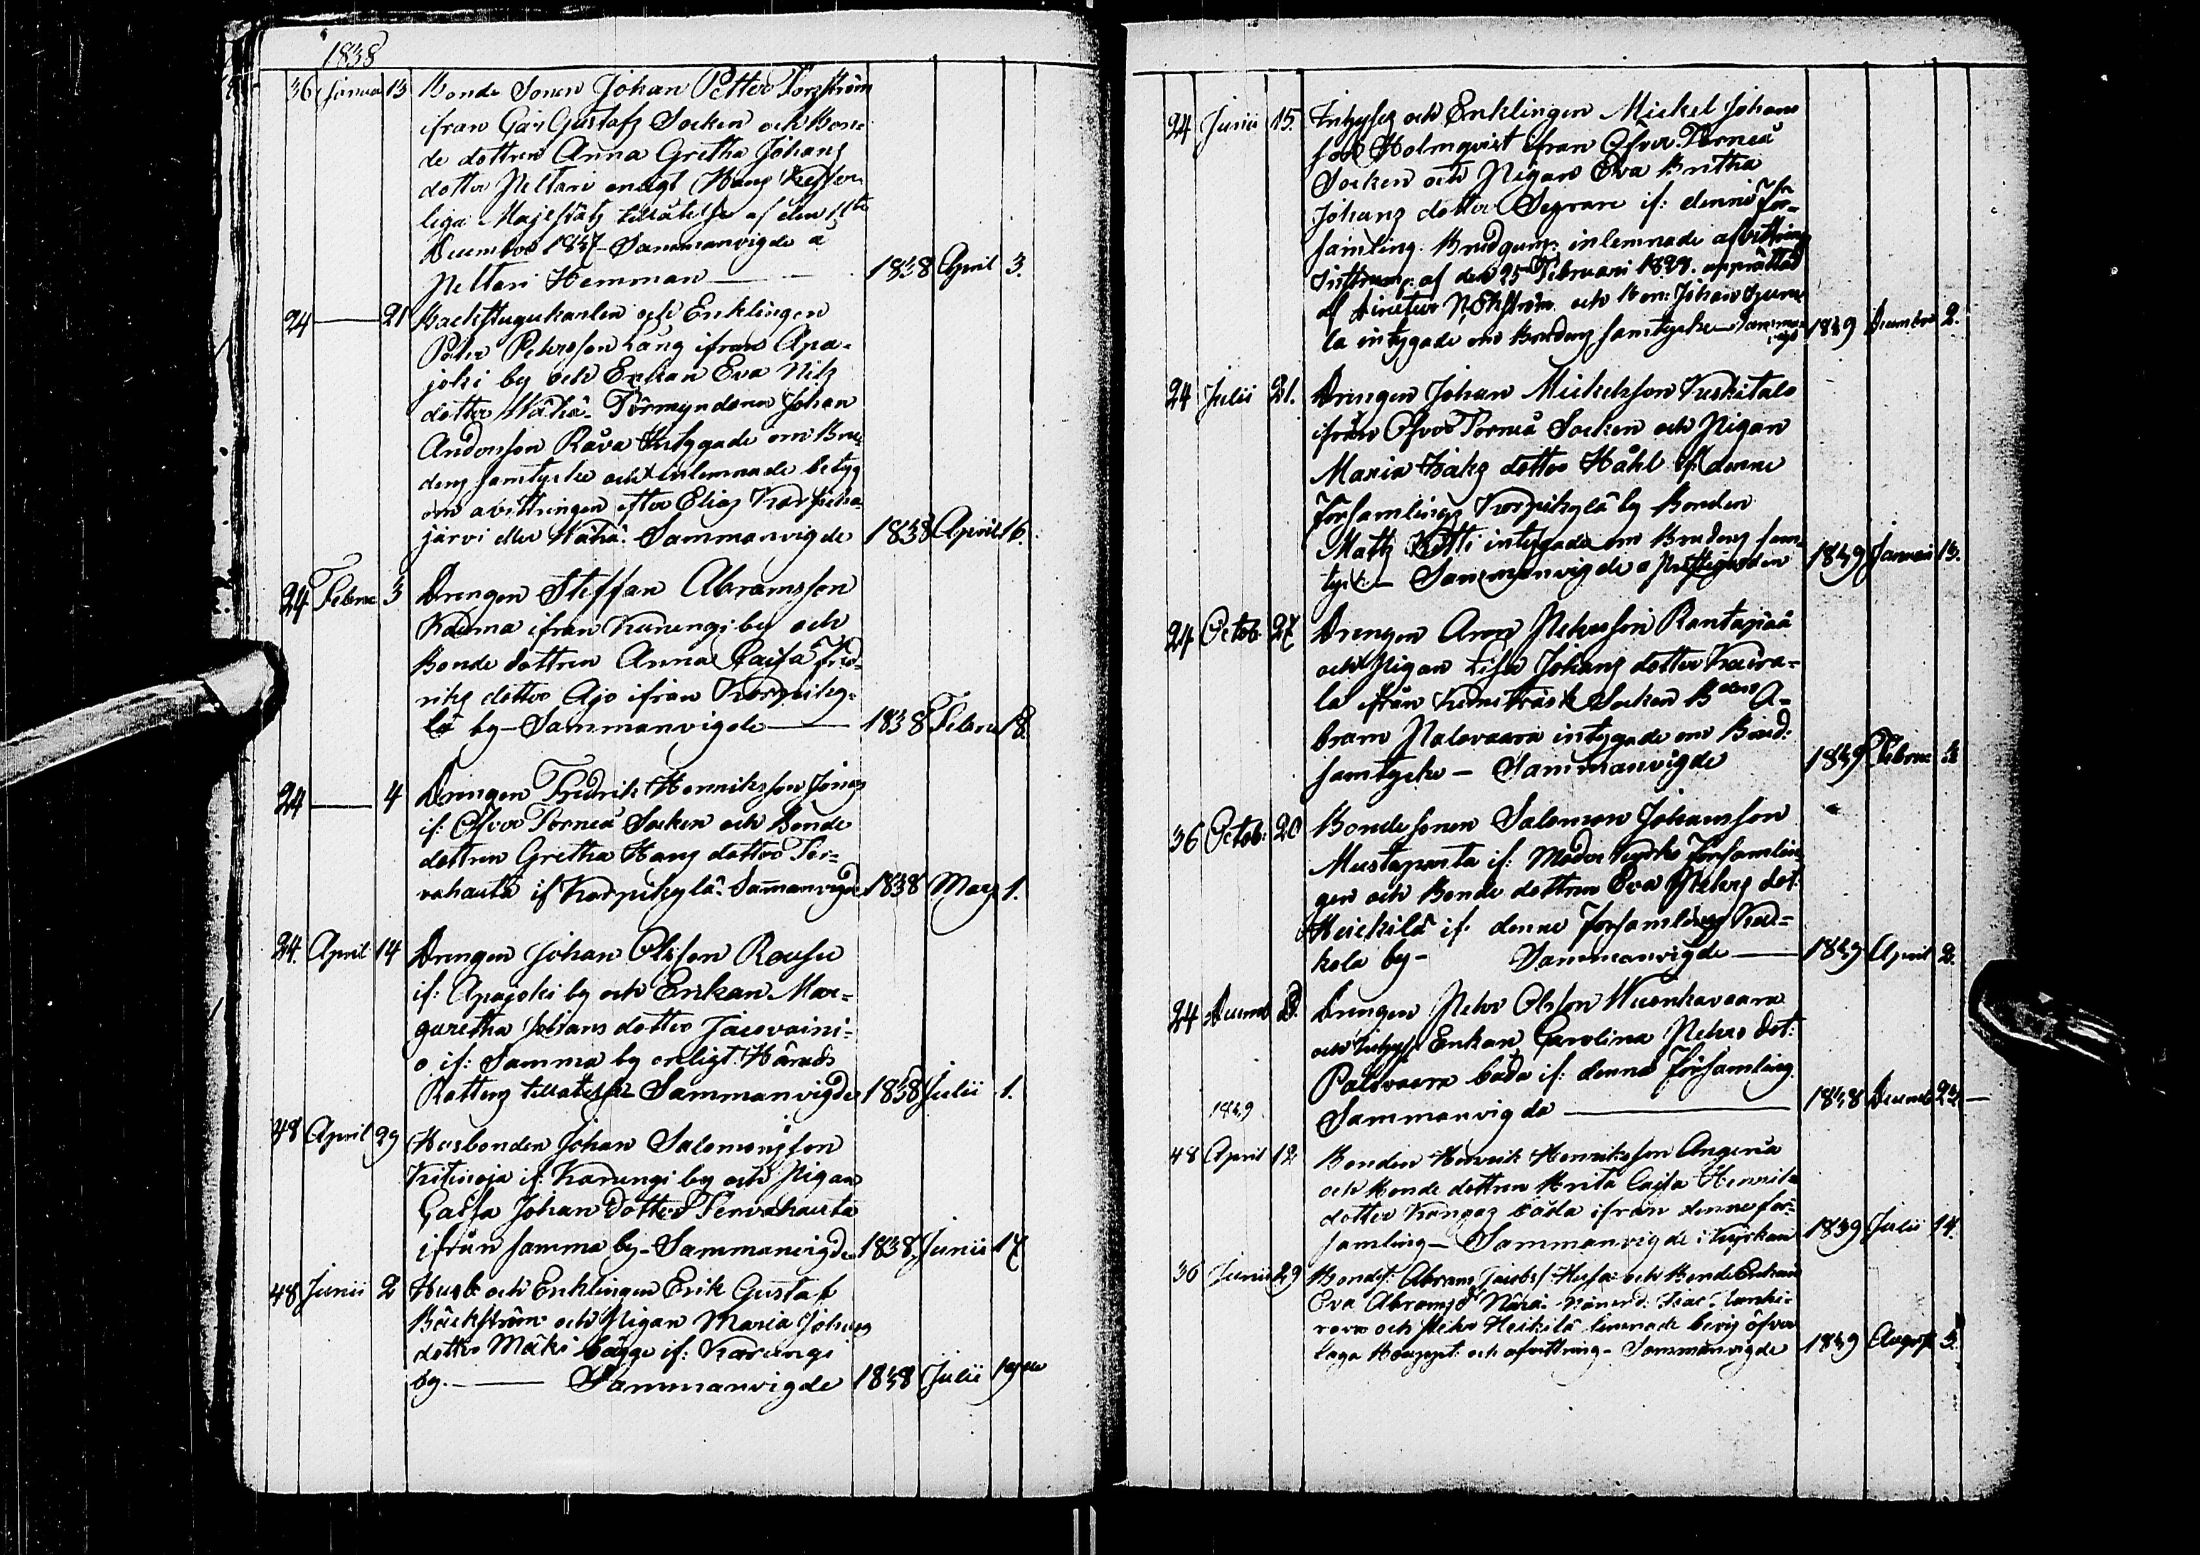 1838
36 Janua 13 Bonde Sonen Johan Petter Forsström
ifran Carl Gustafs Socken och Bon-
de dottren Anna Gretha Johans
dotter Peltari enligt Hans Kejser-
liga Majestäts tillåtelse af den 11te
December 1837 Sammanvigde å
Peltari Hemman — 1838 April 3.
24 — 21 Backstugukarlen och Enklingen
Peter Petersson Lång ifran Apa-
joki by och Enkan Eva Nils
dotter Wähä. Förmyndaren Johan
Andersson Råva Intygade om Bru-
dens samtycke och inlemnade betyg
om avittringen efter Elias
järvi eller Wähä. Sammanvigde 1838 April 16.
24 Febru 3 Drengen Steffan Abramsson
Kauma ifran Karungi by och
Bonde dottren Anna Caisa Fred-
riks dotter Ajo ifrån Korpiky-
lä by — Sammanvigde — 1838 Febru 18.
24 — 4 Drengen Fredrik Henriksson Jonas
if: Öfver Torneå Socken och Bonde
dottren Gretha Hans dotter Ter-
vahauta if Korpikylä. Sammanvigde 1838 May 1.
24. April 14 Drengen Johan Olsson Rousu
if: Apajoki by och Enkan Mar-
garetha Johans dotter
o if: Samma by enligt Härads
Rättens tillåtelse Sammanvigde 1838 Julii 1.
48 April 29 Husbonden Johan Salomonsson
Kitinoja if: Karungi by och Pigan
Caisa Johan Dotter Tervahauta
ifrån samma by — Sammanvigde 1838 Junii 17
48 Junii 2 Husb: och Enklingen Erik Gustaf
Bäckström och Pigan Maria Johans
dotter Mäki bägge if: Karungi
by. — Sammanvigde 1838 Julii
24 Junii 15. Inhyses och Enklingen Mickel Johans
son Holmqvist ifran Öfver Torneå
Socken och Pigan Eva Britha
Johans dotter if: denne För-
samling. Brudgum: inlemnade afvittrings
Instrum: af den 25 Februari 1828. upprättad
af och Bon: Johan
la intygade om Brudens samtycke — 1839 December 2.
24 Julii 21. Drengen Johan Mickelsson Keskitalo
ifrån Öfver Torneå Socken och Pigan
Maria Isaks dotter Håhl if denne
Församlings Korpikylä by Bonden
Matts intygade om Brudens sam-
tyck — Sammanvigde a Prestegården 1839 Januari 13.
24 Octob: 27 Drengen Petersson Rantapää
och Pigan Lisa Johans dotter Kaira-
la ifrån Kemiträsk Socken Bonden A-
bram Palovaara intygade om Brud:
samtycke — Sammanvigde 1839 Febru 3
36 Octob: 20 Bonde sonen Salomon Johansson
Mustaparta if: Moder Kyrko Församlin-
gen och Bonde dottren Eva Peters dot:
Heickilä if: denne Församlings Kuk-
kola by — Sammanvigde — 1839 April 2.
24 Decemb Drengen Peter Olsson Wuonkavaara
och Inhys: Enkan Carolina Peters dot:
Palovaara båda if: denna Församling.
Sammanvigde — 1838 Decemb 23 —
1839
48 April 12 Bonden Henrik Henriksson Angeriä
och Bonde dottren Brita Caisa Henriks
dotter Kangas båda ifrån denne för-
samling — Sammanvigde i Kyrkan 1839 Julii 14.
36 Junii 29 Bondes: Abram Jacobss: Husa och Bonde Enkan
Eva Abramsd: Isac
vara och Peter Heikilä lemnade bevis öfver
laga och afvittring — Sammanvigde 1839 August 3.